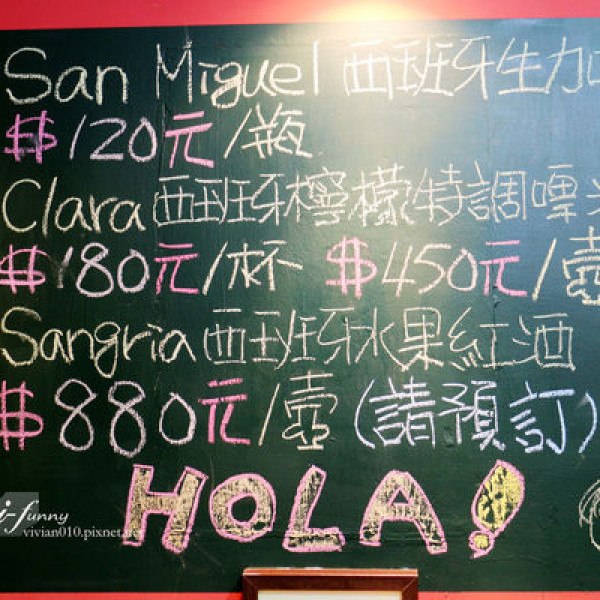 San Miguel 西班牙生力
$120元/瓶
Clara 西班牙檸檬特調啤
$180元/杯 $450元/壺
Sangria 西班牙水果紅酒
$880元/壺 (請預訂)
HOLA!
i-Funny
vivian010.pixnet.net